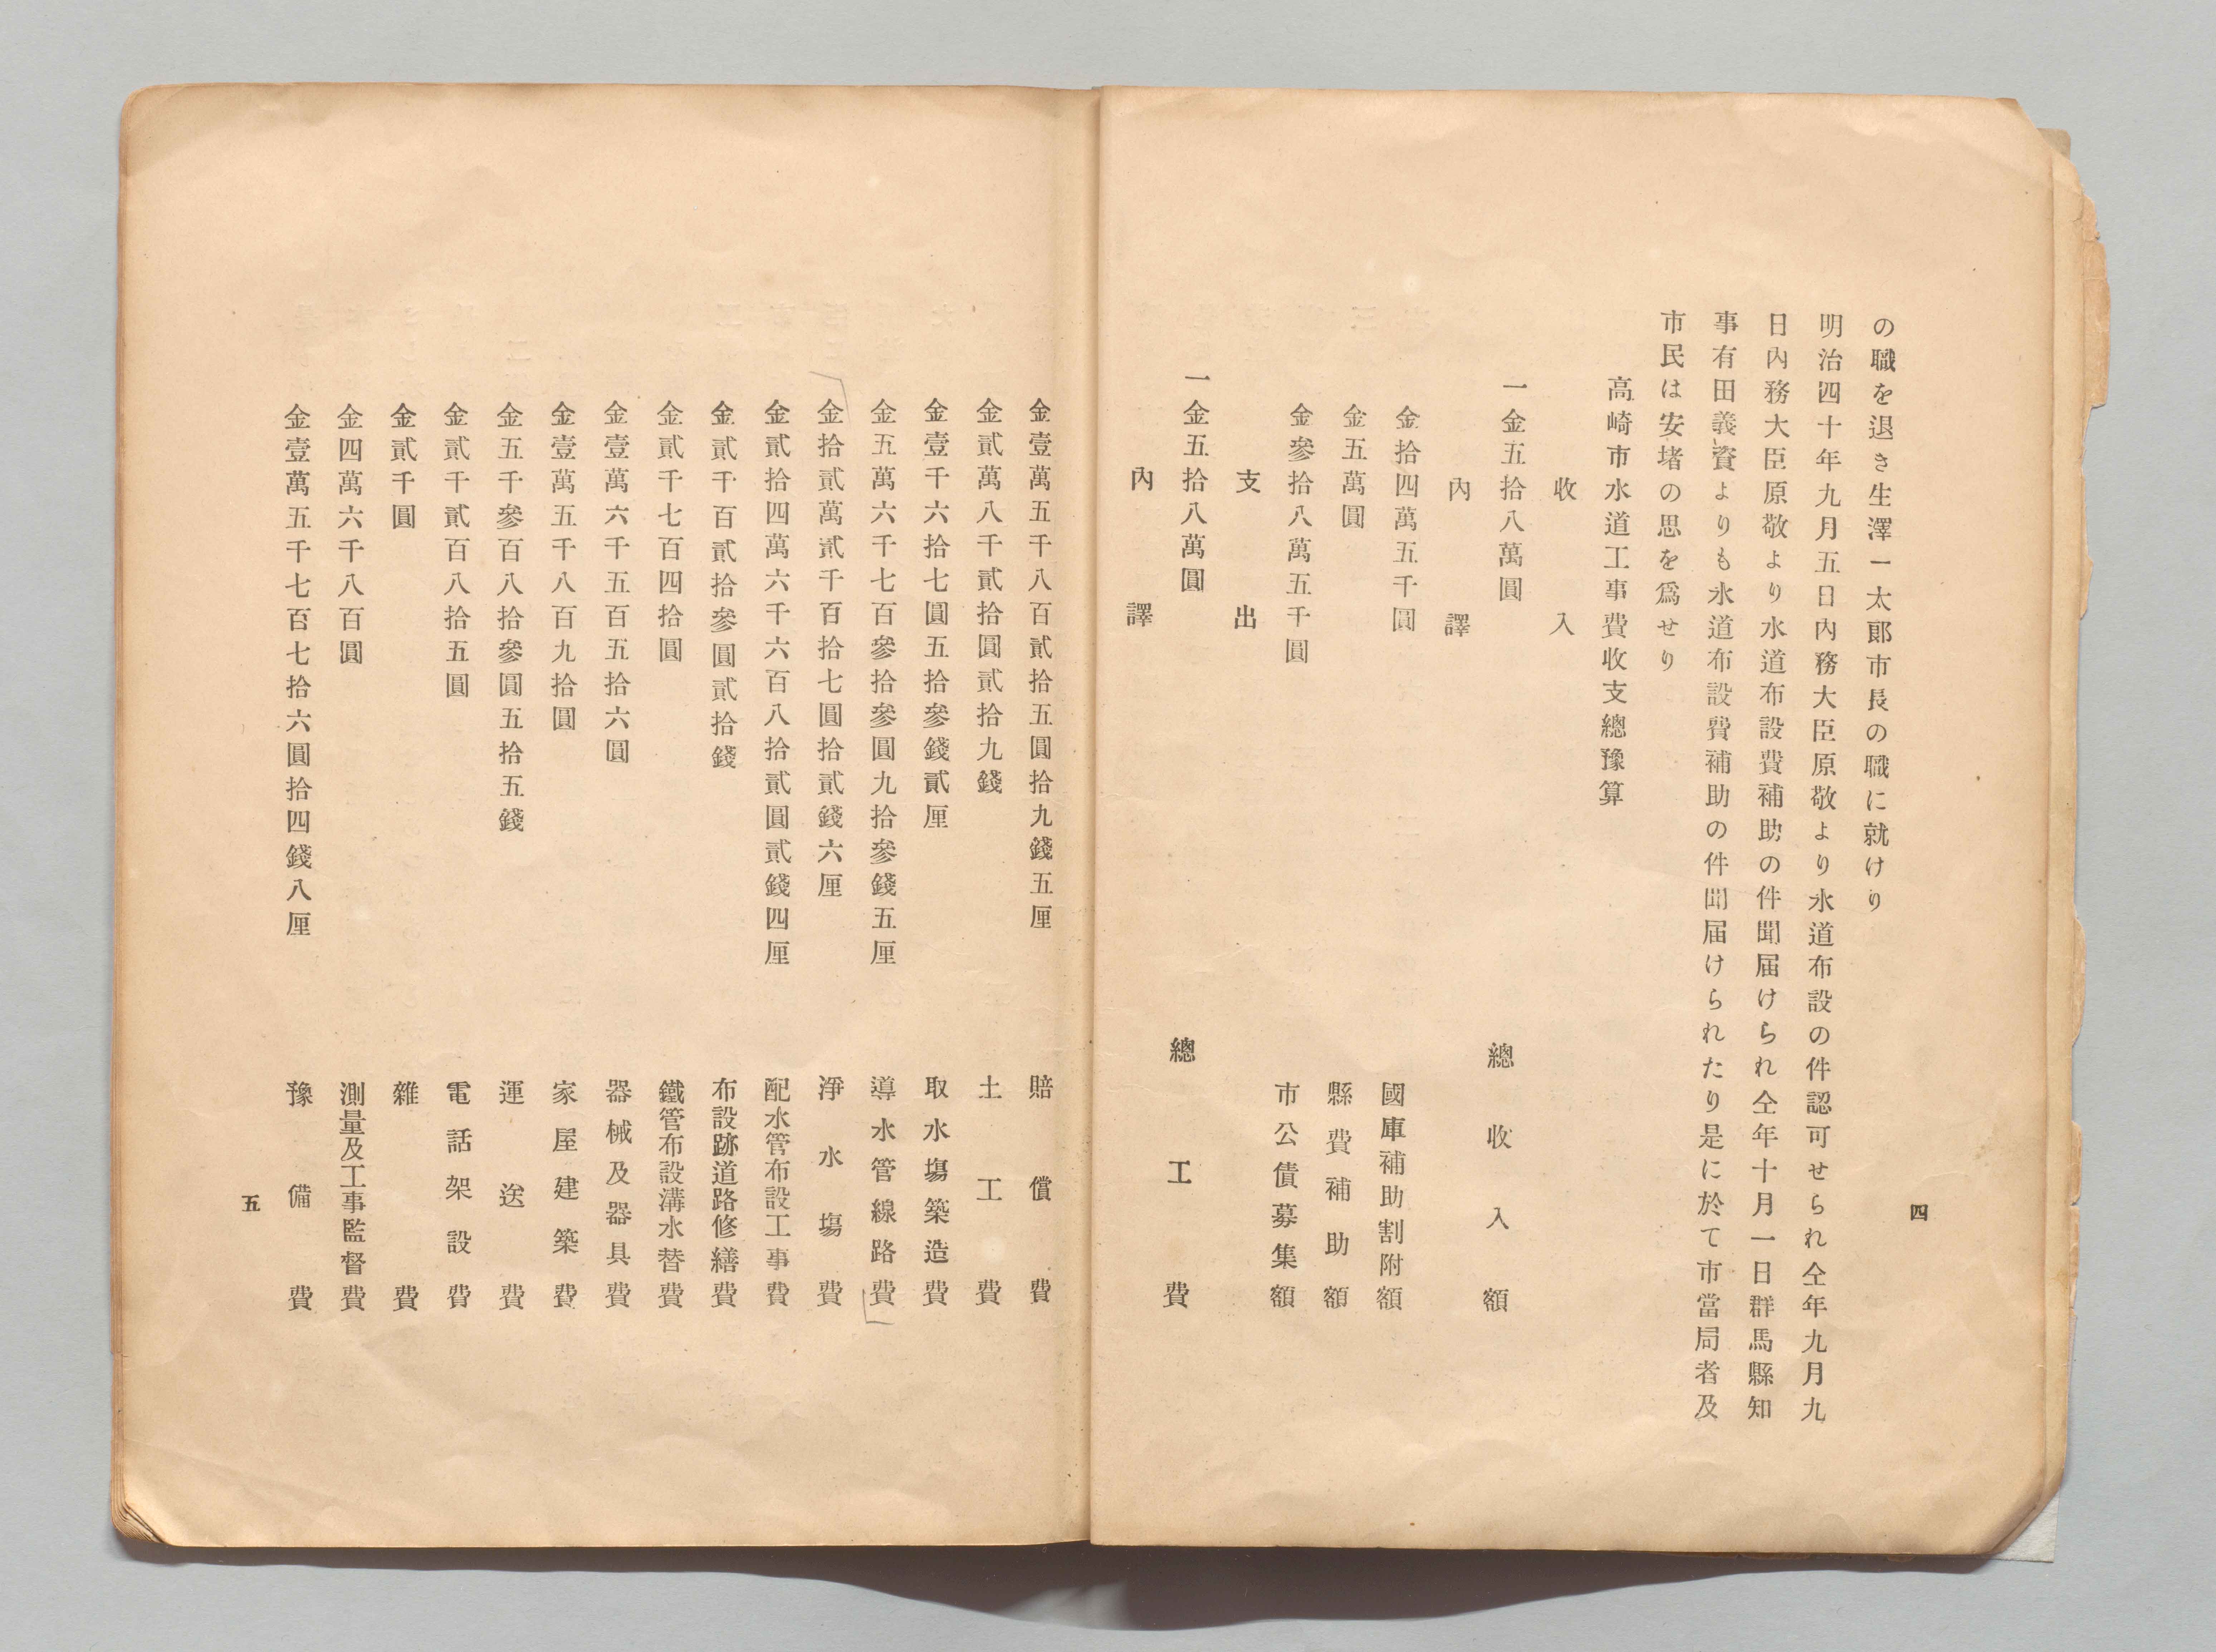 四
の職を退き生澤一太郞市長の職に就けり
明治四十年九月五日內務大臣原敬より水道布設の件認可せられ仝年九月九
日內務大臣原敬より水道布設費補助の件聞届けられ仝年十月一日群馬縣知
事有田義資よりも水道布設費補助の件聞届けられたり是に於て市當局者及
市民は安堵の思を爲せり
高崎市水道工事費收支總豫算
收入
一金五拾八萬圓 總收入額
內譯
金拾四萬五千圓 國庫補助割附額
金五萬圓 縣費補助額
金參拾八萬五千圓 市公債募集額
支出
一金五拾八萬圓 總工費
內譯
金壹萬五千八百貳拾五圓拾九錢五厘 賠償費
金貳萬八千貳拾圓貳拾九錢 土工費
金壹千六拾七圓五拾參錢貳厘 取水塲築造費
金五萬六千七百參拾參圓九拾參錢五厘 導水管線路費
金拾貳萬貳千百拾七圓拾貳錢六厘 淨水塲費
金貳拾四萬六千六百八拾貳圓貳錢四厘 配水管布設工事費
金貳千百貳拾參圓貳拾錢 布設跡道路修繕費
金貳千七百四拾圓 鐵管布設溝水替費
金壹萬六千五百五拾六圓 器械及器具費
金壹萬五千八百九拾圓 家屋建築費
金五千參百八拾參圓五拾五錢 運送費
金貳千貳百八拾五圓 電話架設費
金貳千圓 雜費
金四萬六千八百圓 測量及工事監督費
金壹萬五千七百七拾六圓拾四錢八厘 豫備費
五